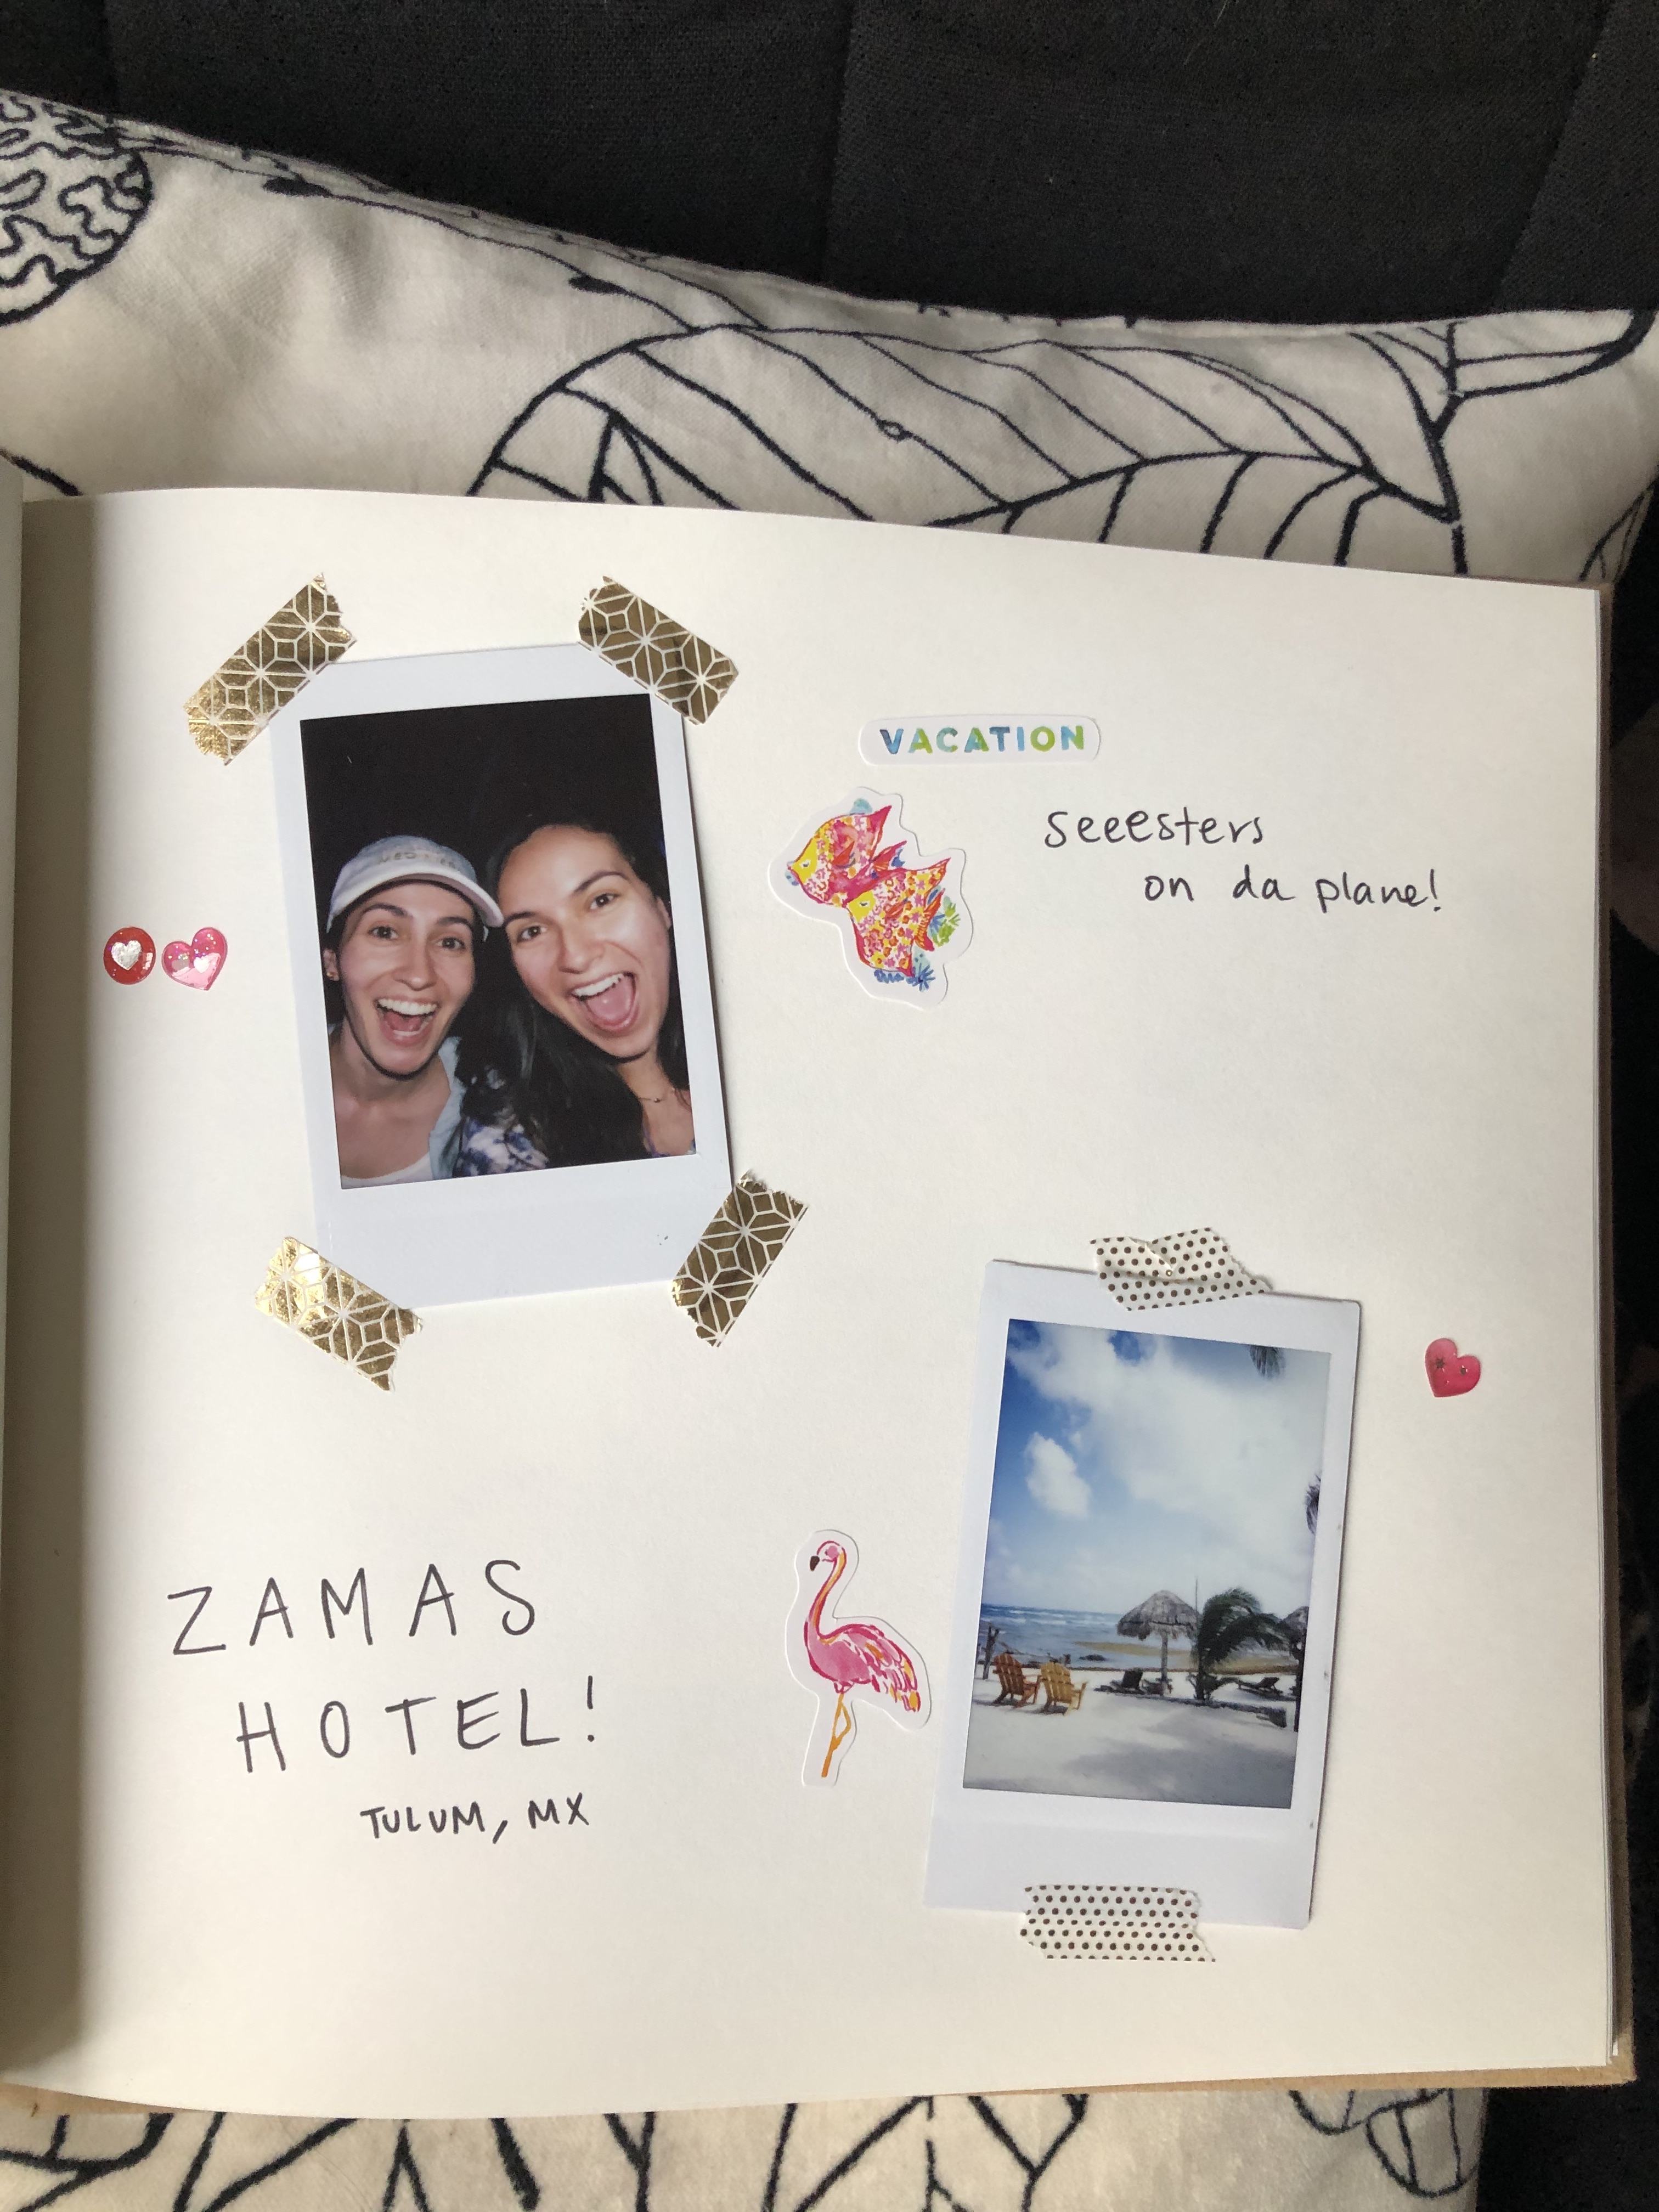 VACATION
seeesters
on da plane!
ZAMAS
HOTEL!
TULUM, MX